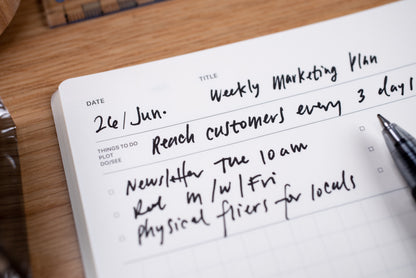 DATE TITLE
26/Jun. Weekly Marketing Plan
THINGS TO DO
PLOT
DO/SEE
Reach customers every 3 days
Newsletter Tue 10am
M/W/Fri
Physical fliers for locals